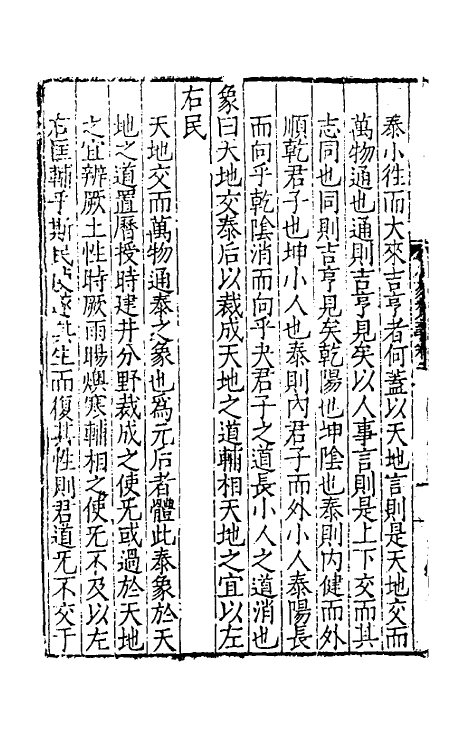 泰小徃而大來吉亨者何葢以天地言則是天地交而
萬物通也通則吉亨見矣以人事言則是上下交而其
志同也同則吉亨見矣乾陽也坤陰也泰則内健而外
順乾君子也坤小人也泰則内君子而外小人泰陽長
而向乎乾陰消而向乎夬君子之道長小人之道消也
象曰天地交泰后以裁成天地之道輔相天地之宜以左
右民
天地交而萬物通泰之象也為元后者體此泰象於天
地之道置曆授時建井分野裁成之使旡或過於天地
之宜辨厥土性時厥雨暘燠寒輔相之使旡不及以左
右匡輔乎斯民民遂其生而復其性則君道旡不交于